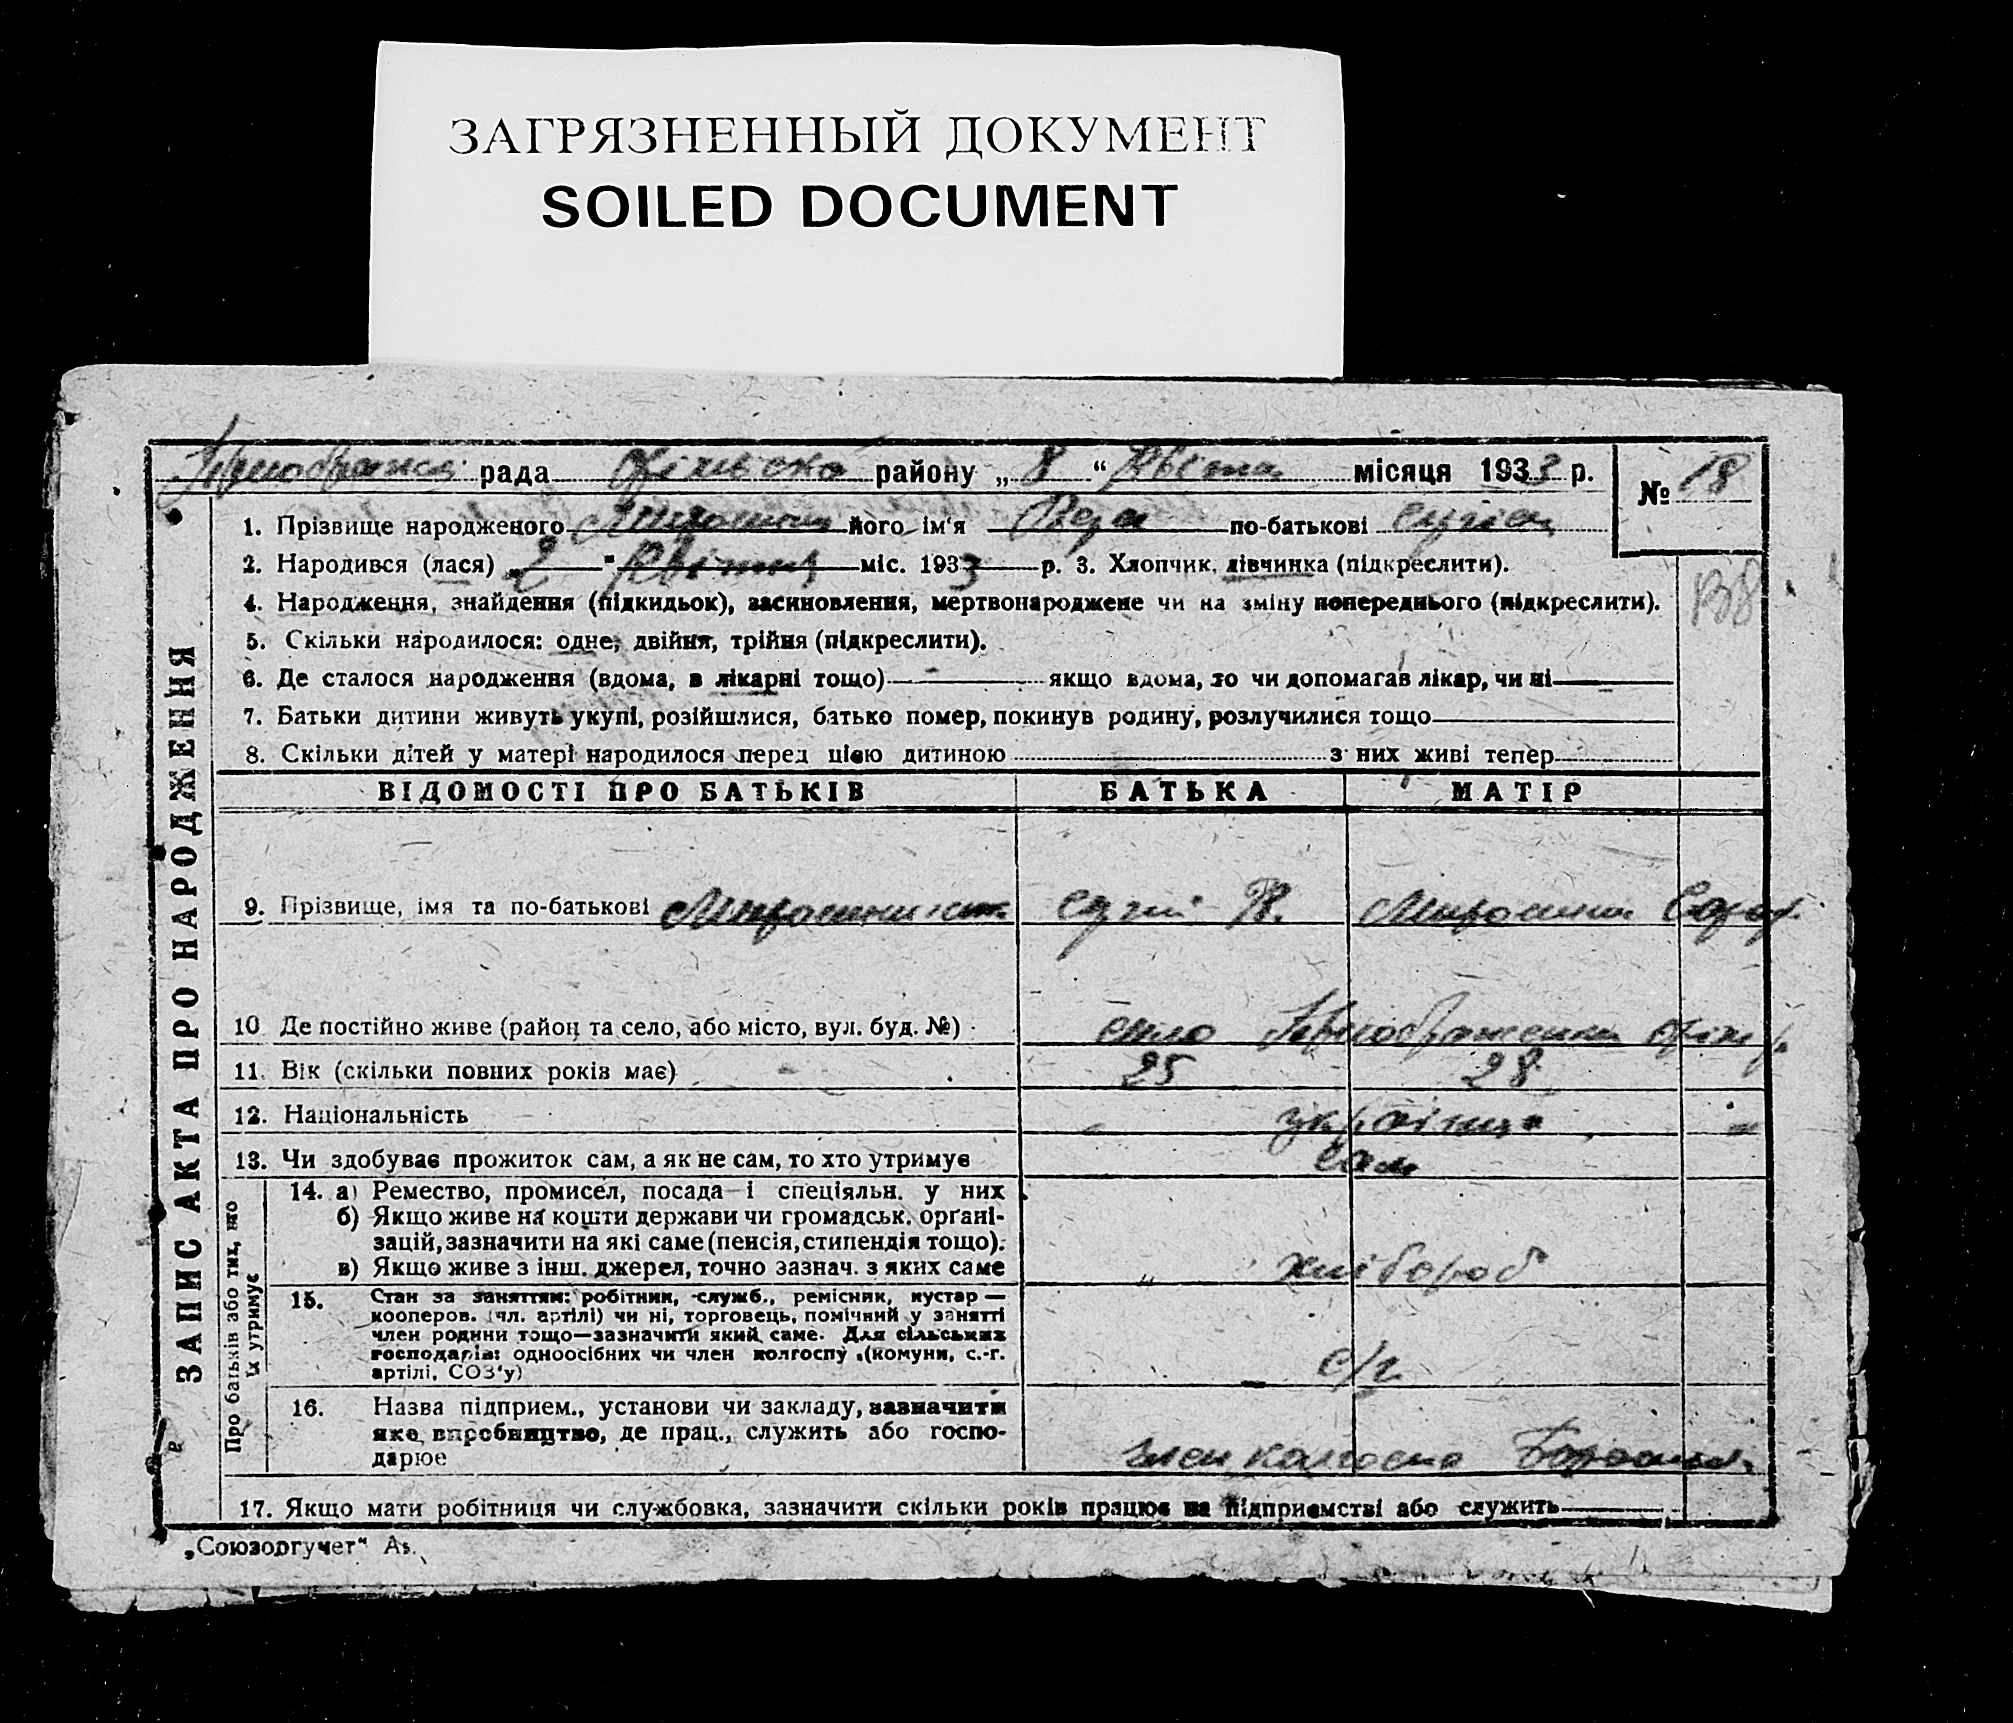 ЗАГРЯЗНЕННЫЙ ДОКУМЕНТ
SOILED DOCUMENT
рада району „ 8 “ Квітня місяця 1933 р. № 18
1. Прізвище народженого його ім'я по-батькові
2. Народився (лася) „ 2 " Квітня міс. 1933 р. 3. Хлопчик, дівчинка (підкреслити).
138
4. Народження, знайдення (підкидьок), засиновлення, мертвонароджене чи на зміну попереднього (підкреслити).
5. Скільки народилося: одне, двійня, трійня (підкреслити).
6. Де сталося народження (вдома, в лікарні тощо) — якщо вдома, то чи допомагав лікар, чи ні —
7. Батьки дитини живуть укупі, розійшлися, батько помер, покинув родину, розлучилися тощо
8. Скільки дітей у матері народилося перед цією дитиною з них живі тепер
ЗАПИС АКТА ПРО НАРОДЖЕННЯ
ВІДОМОСТІ ПРО БАТЬКІВ БАТЬКА МАТІР
9. Прізвище, імя та по-батькові
10 Де постійно живе (район та село, або місто, вул. буд. №) село
11. Вік (скільки повних років має) 25 28
12. Національність
13. Чи здобуває прожиток сам, а як не сам, то хто утримує сам
Про батьків або тих, що їх утримує
14. а) Ремество, промисел, посада і спеціяльн. у них
б) Якщо живе на кошти держави чи громадськ. орґані-
зацій, зазначити на які саме (пенсія, стипендія тощо).
в) Якщо живе з інш. джерел, точно зазнач. з яких саме „ хлібороб
15. Стан за заняттям: робітник, служб., ремісник, кустар —
кооперов. (чл. артілі) чи ні, торговець, помічний у занятті
член родини тощо—зазначити який саме. Для сільських
господарів: одноосібних чи член колгоспу (комуни, с.-г.
артілі, СОЗ'у) с/г
16. Назва підприєм., установи чи закладу, зазначити
яке виробництво, де прац., служить або госпо-
дарює член колгоспа
17. Якщо мати робітниця чи службовка, зазначити скільки років працює на підприємстві або служить
„Союзоргучет"